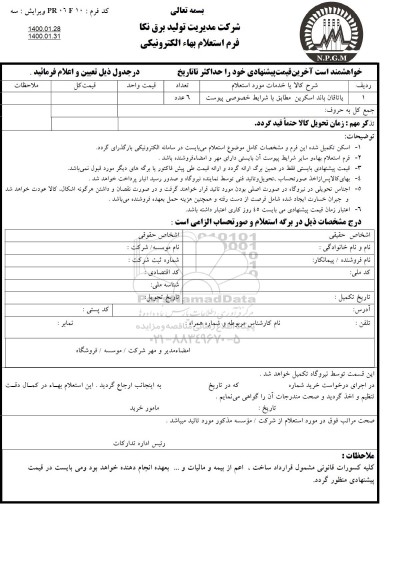 بسمه تعالی
کد فرم : PR ۰۶ F ۱۰ ویرایش : سه
شرکت مدیریت تولید برق نکا
فرم استعلام بهاء الکترونیکی
1400.01.28
1400.01.31
N.P.G.M
خواهشمند است آخرین قیمت پیشنهادی خود را حداکثر تاتاریخ درجدول ذیل تعیین و اعلام فرمائید .
ردیف شرح کالا یا خدمات مورد استعلام تعداد قیمت واحد قیمت کل ملاحظات
۱ یاتاقان باند اسکرین مطابق با شرایط خصوصی پیوست ۶ عدد
جمع کل به حروف:
تذکر مهم : زمان تحویل کالا حتماً قید گردد.
توضیحات:
۱- اسکن تکمیل شده این فرم و مشخصات کامل موضوع استعلام می‌بایست در سامانه الکترونیکی بارگذرای گردد.
۲- فرم استعلام بهاءو سایر شرایط پیوست آن بایستی دارای مهر و امضاءفروشنده باشد .
۳- قیمت پیشنهادی بایستی فقط در همین برگ ارائه گردد و ارائه قیمت طی پیش فاکتور یا برگه های دیگر مورد قبول نمی‌باشد.
۴- بهای کالاپس ازاخذ صورتحساب ،تحویل وتائید فنی توسط نماینده نیروگاه و صدور رسید انبار پرداخت خواهد شد.
۵- اجناس تحویلی در نیروگاه در صورت اصلی بودن مورد تائید قرار خواهند گرفت و در صورت نقصان و داشتن هرگونه اشکال، کالا عودت خواهد شد
و جبران خسارت ایجاد شده شامل فرصت از دست رفته و همچنین هزینه حمل بعهده فروشنده می‌باشد .
۶- اعتبار زمان قیمت پیشنهادی می بایست ۴۵ روز کاری اعتبار داشته باشد.
درج مشخصات ذیل در برگه استعلام و صورتحساب الزامی است :
اشخاص حقیقی اشخاص حقوقی
نام و نام خانوادگی : نام موسسه/ شرکت :
نام فروشنده / پیمانکار: شماره ثبت شرکت :
کد ملی: کد اقتصادی:
شناسه ملی:
تاریخ تکمیل : تاریخ تحویل:
آدرس: کد پستی :
تلفن : نام کارشناس مربوطه و شماره همراه : نمابر :
۰۲۱-۸۸۳۴۹۶۷۰-۵
امضاءمدیر و مهر شرکت / موسسه / فروشگاه
این قسمت توسط نیروگاه تکمیل خواهد شد .
در اجرای درخواست خرید شماره که در تاریخ به اینجانب ارجاع گردید . این استعلام بهـاء در کمـال دقـت
تنظیم و اخذ گردید و صحت مندرجات آن را گواهی می‌نمایم .
تاریخ : مامور خرید
صحت مراتب فوق در مورد استعلام از شرکت / مؤسسه مذکور مورد تائید میباشد .
رئیس اداره تدارکات
ملاحظات :
کلیه کسورات قانونی مشمول قرارداد ساخت ، اعم از بیمه و مالیات و ... بعهده انجام دهنده خواهد بود ومی بایست در قیمت
پیشنهادی منظور گردد.